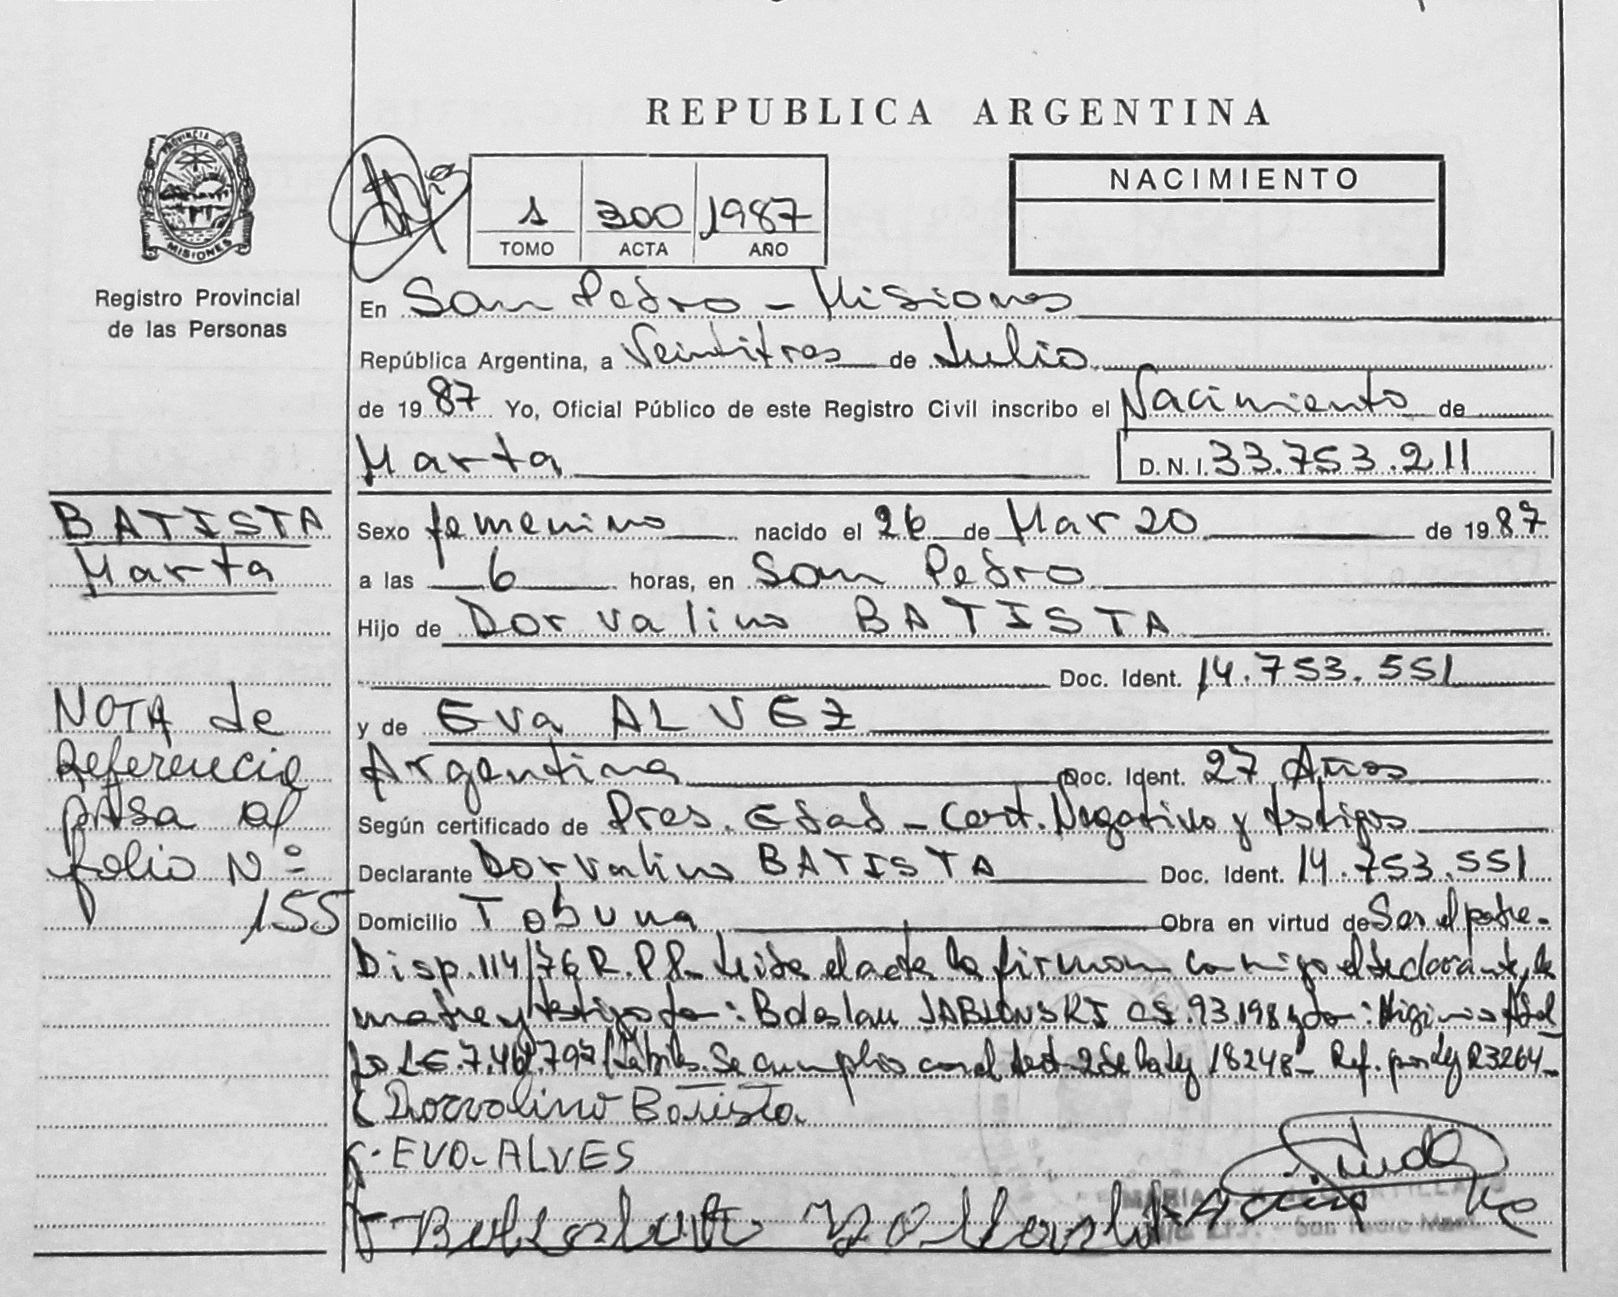 REPUBLICA ARGENTINA
PROVINCIA DE
MISIONES
Registro Provincial
de las Personas
1 300 1987
TOMO ACTA AÑO
NACIMIENTO
En San Pedro - Misiones
República Argentina, a Veintitres de Julio
de 1987 Yo, Oficial Público de este Registro Civil inscribo el Nacimiento de
Marta D.N.I. 33.753.211
BATISTA
Marta
Sexo femenino nacido el 26 de Marzo de 1987
a las 6 horas, en San Pedro
Hijo de Dorvalino BATISTA
Doc. Ident. 14.753.551
y de Eva ALVEZ
Argentina Doc. Ident. 27 Años
Según certificado de Pres. Edad - Cert. Negativo y testigos
Declarante Dorvalino BATISTA Doc. Ident. 14.753.551
Domicilio Tobuna Obra en virtud de Ser el padre-
NOTA de
Referencia
pasa al
folio Nº
155
Disp. 114/76 R.P.P. Leida el acta la firman conmigo el declarante, la
madre y testigos don: Boleslau JABLONSKI CI. 93.198 y don: Higinio
LE. 7.461.797 Se cumplio con el art. 2 de la ley 18248- Ref. por ley R3264-
Dorvalino Batista
EVO-ALVES